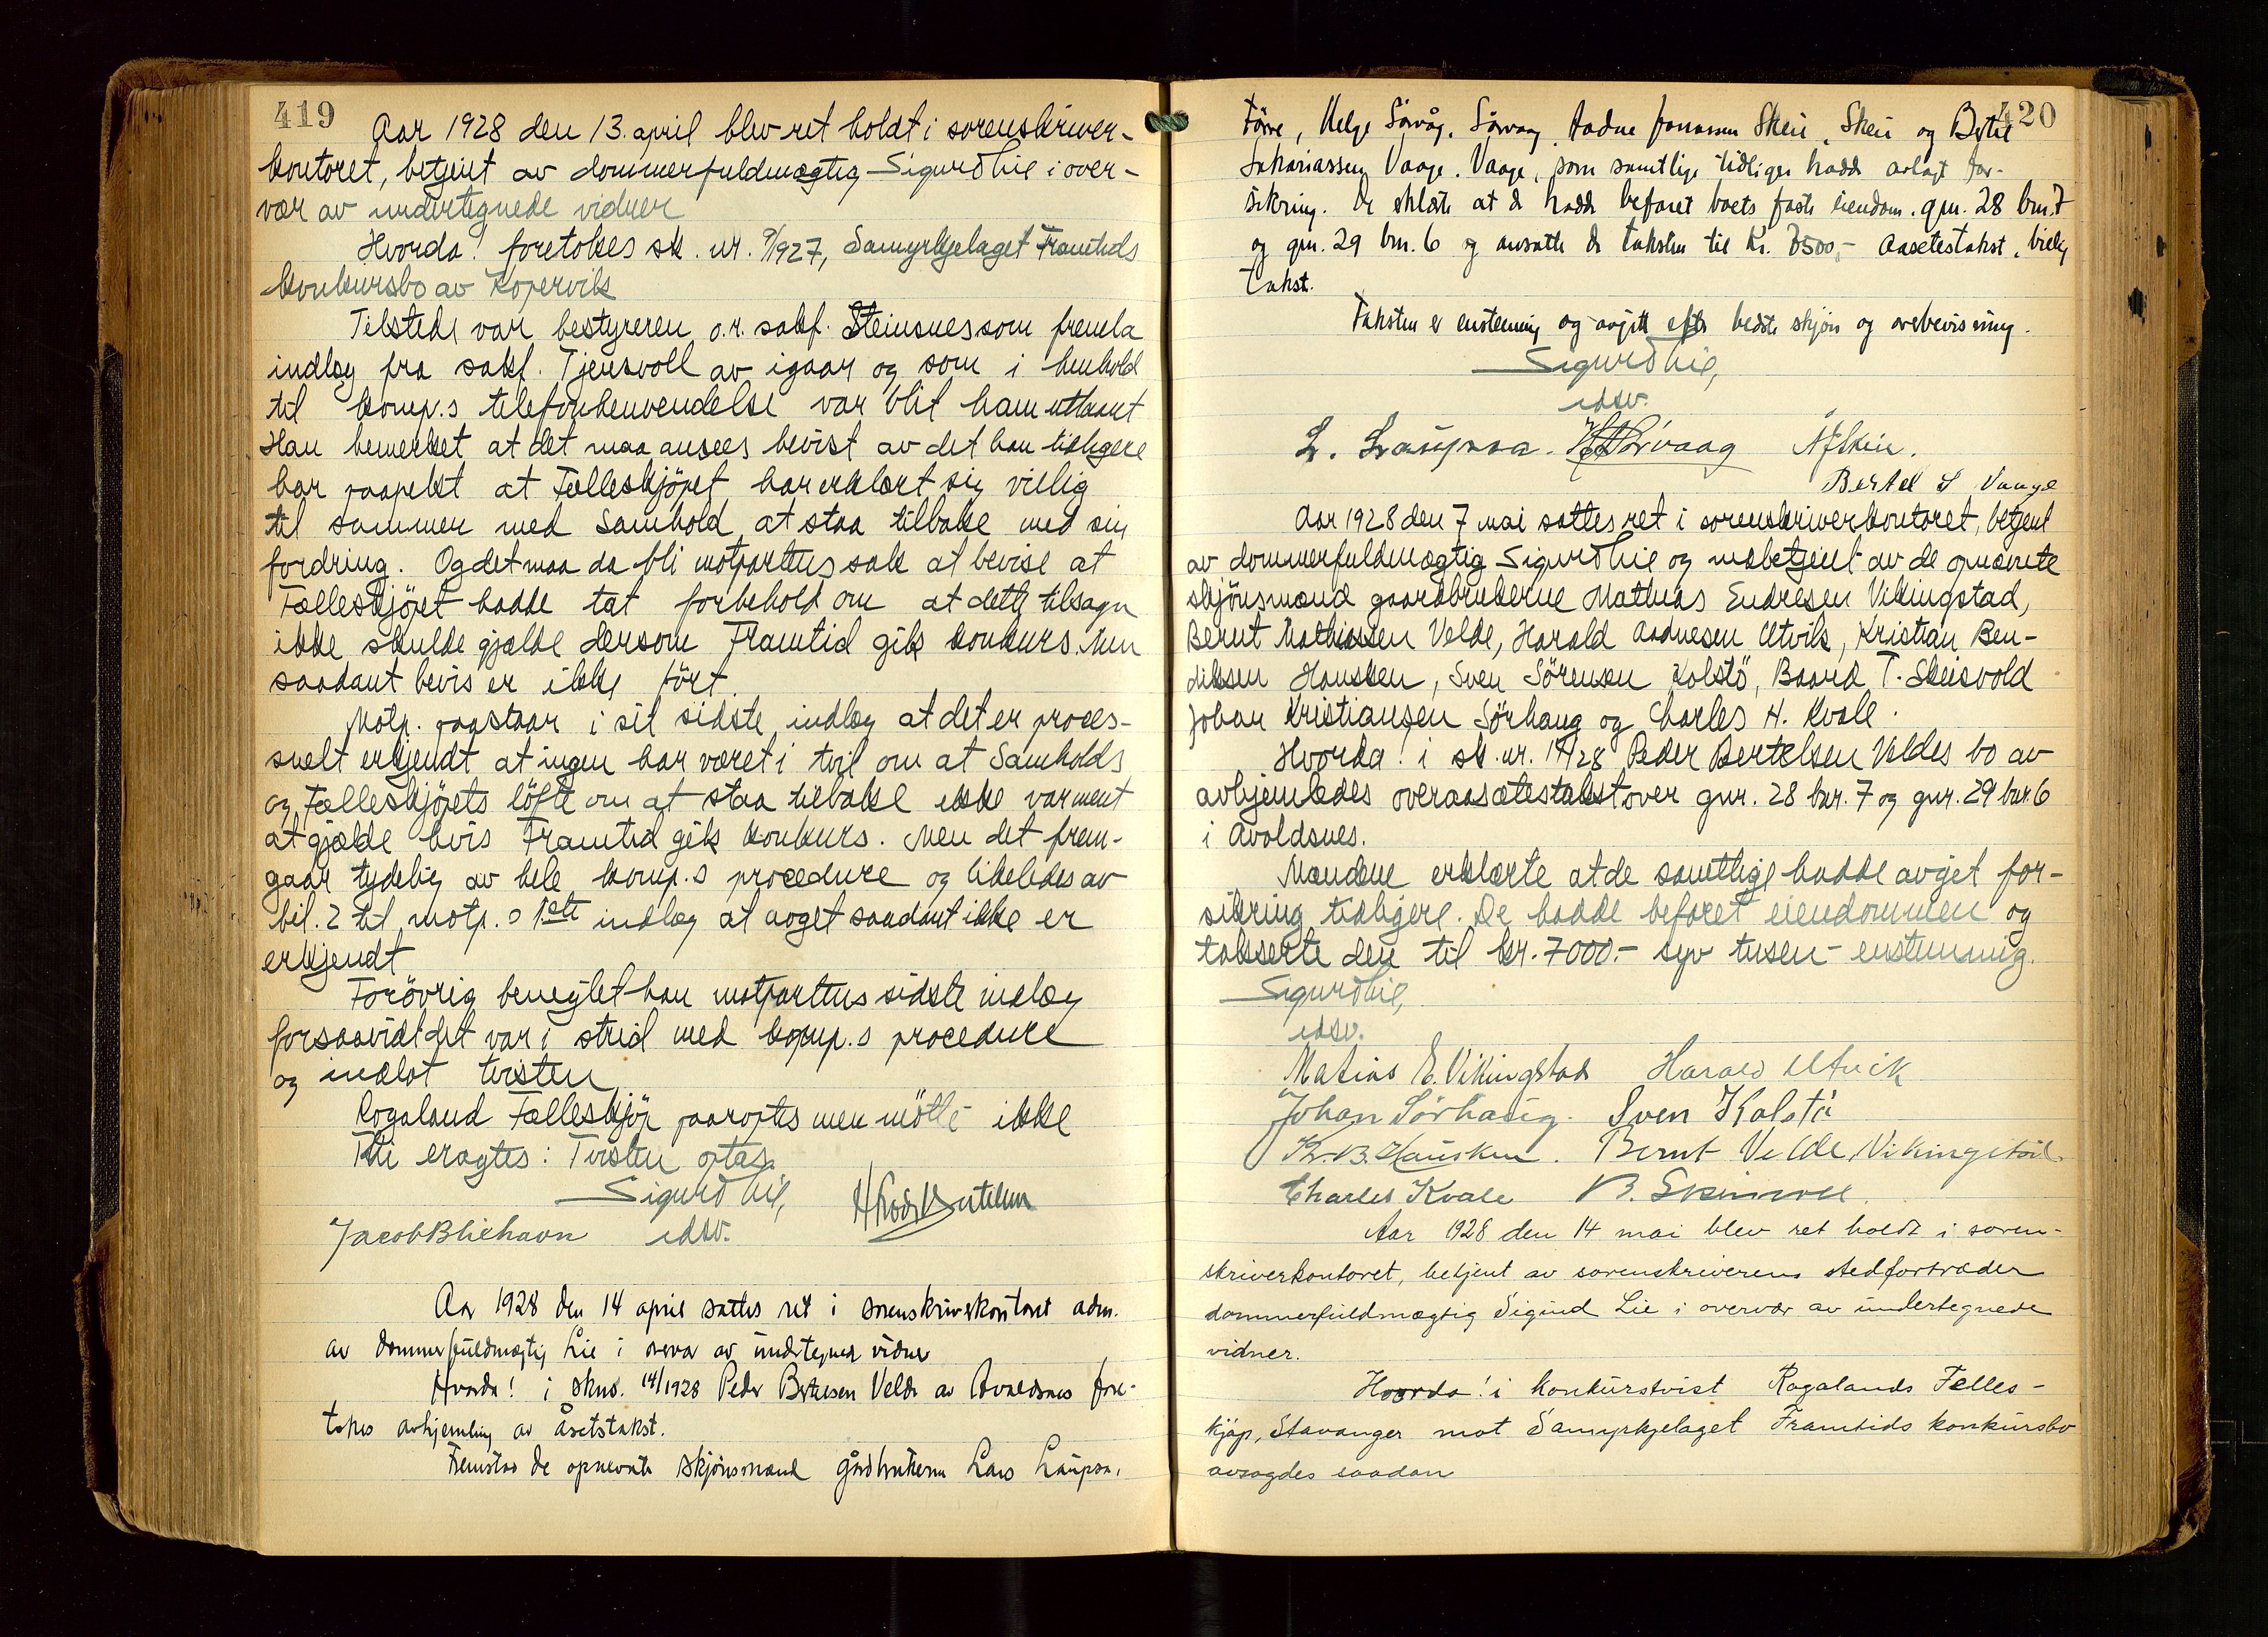 419
Aar 1928 den 13. april blev ret holdt i sorenskriver-
kontoret, betjent av dommerfuldmægtig Sigurd Lie i over-
vær av undertegnede vidner
Hvorda! foretokes sk. nr. 9/927, Samyrkjelaget Framtids
konkursbo av Kopervik
Tilstede var bestyreren o.r. sakf. Steinsnes som fremla
indlæg fra sakf. Tjensvoll av igaar og som i henhold
til komp.s telefonhenvendelse var blit ham utlaant
Han bemerket at det maa ansees bevist av det han tidligere
har paapekt at Fælleskjöpet har erklært sig villig
til sammen med Samhold at staa tilbake med sin
fordring. Og det maa da bli motpartens sak at bevise at
Fælleskjöpet hadde tat forbehold om at dette tilsagn
ikke skulde gjælde dersom Framtid gik konkurs. Men
saadant bevis er ikke fört.
Motp. paastaar i sit sidste indlæg at det er proces-
suelt erkjendt at ingen har været i tvil om at Samholds
og Fælleskjöpets löfte om at staa tilbake ikke var ment
at gjælde hvis Framtid gik konkurs. Men det frem-
gaar tydelig av hele komp.s procedure og likeledes av
bil. 2 til motp.s 1ste indlæg at noget saadant ikke er
erkjendt
Forövrig benegtet han motpartens sidste indlæg
forsaavidt det var i strid med komp.s procedure
og indlot tvisten
Rogaland Fælleskjöp paaroptes men mötte ikke
Thi eragtes: Tvisten optas.
Sigurd Lie,
Jacob B Liehavn edsv.
Aar 1928 den 14 april sattes ret i sorenskriverkontoret adm.
av dommerfuldmægtig Lie i overvær av undertegnede vidner
Hvorda! i skns. 14/1928 Peder Bertelsen Velde av Avaldsnes fore-
tokes avhjemling av åsetstakst.
Fremstod de opnevnte skjönsmænd gårdbrukerne Lars Laupsa,
420
Förre, Helge Sörvåg, Sörvaag, Aadne Skeie, Skeie og Bertel
Sakariassen Vaage, Vaage, som samtlige tidligere hadde avlagt for-
sikring. De erklærte at de hadde befaret boets faste eiendom. gnr. 28 bnr. 7
og gnr. 29 bnr. 6 og ansatte de taksten til kr. 7500,- Aasetestakst,
takst.
Taksten er enstemmig og avgitt efter bedste skjön og overbevisning.
Sigurd Lie,
edsv.
L. Laupsa. H Sörvaag A J Skeie.
Bertel S Vaage
Aar 1928 den 7 mai sattes ret i sorenskriverkontoret, betjent
av dommerfuldmægtig Sigurd Lie og medbetjent av de opnævnte
skjönsmænd gaardbrukerne Mathias Endresen Vikingstad,
Bernt Mathiassen Velde, Harald Aadnesen Utvik, Kristian Ben-
diksen Hausken, Sven Sörensen Kolstö, Baard T. Skeisvold
Johan Kristiansen Sörhaug og Charles H. Kvale.
Hvorda! i sk. nr. 14/28 Peder Bertelsen Veldes bo av
avhjemledes overaasætestakst over gnr. 28 bnr. 7 og gnr. 29 bnr. 6
i Avaldsnes.
Mændene erklærte at de samtlige hadde avgjet for-
sikring tidligere. De hadde befaret eiendommen og
takserte den til kr. 7000.- syv tusen - enstemmig.
Sigurd Lie,
edsv.
Matias E. Vikingstad Harald Utvik
Johan Sörhaug. Sven Kolstö
Kr. B. Hausken. Bernt Velde Vikingstad
Charles Kvale B. Skeisvoll.
Aar 1928 den 14 mai blev ret holdt i soren-
skriverkontoret, betjent av sorenskriverens stedfortræder
dommerfuldmægtig Sigurd Lie i overvær av undertegnede
vidner.
Hvorda! i konkurstvist Rogalands Felles-
kjöp, Stavanger mot Samyrkjelaget Framtids konkursbo
avsagdes saadan